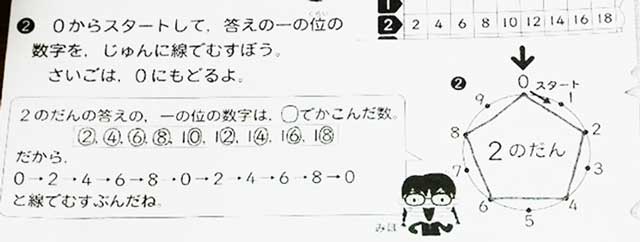 1
2 2 4 6 8 10 12 14 16 18
❷ 0からスタートして，答えの一の位の
くらい
数字を，じゅんに線でむすぼう。
さいごは，0にもどるよ。
2のだんの答えの，一の位の数字は，◯でかこんだ数。
②,④,⑥,⑧,1⓪,1②,1④,1⑥,1⑧
だから，
0→2→4→6→8→0→2→4→6→8→0
と線でむすぶんだね。
みほ
❷
0 スタート
1
2
3
4
5
6
7
8
9
2のだん